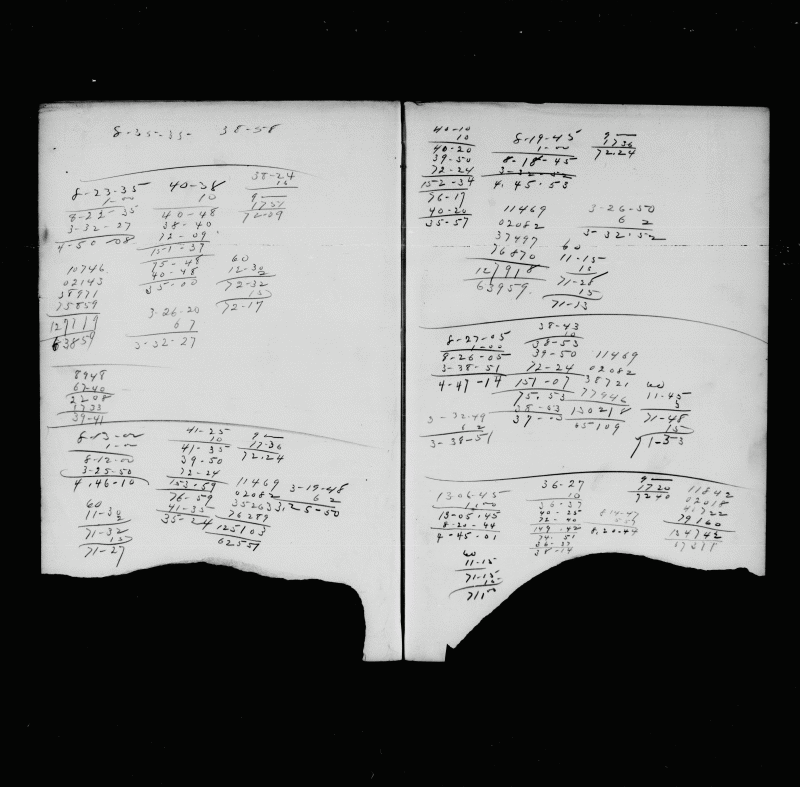 8-35-35- 38-58
8-23-35
1-00
8-22-35
3-32-27
4-50-08
40-38
10
40-48
38-40
72-09
151-37
75-48
40-48
35-00
38-24
16
9
1751
72-09
10746
02143
38971
75859
127719
63859
3-26-20
67
3-32-27
60
12-30
2
72-32
15
72-17
8948
6740
2208
1733
39-41
8-13-00
1-00
8-12-00
3-25-50
4.46-10
41-25
10
41-35
39-50
72-24
153-59
76-59
41-35
35-24
9
17-36
72.24
60
11-30
2
71-32
15
71-27
11469
02082
35263
76289
125103
62551
3-19-48
6 2
3.25-50
40-10
10
40-20
39-50
72-24
152-34
76-17
40-20
35-57
8-19-45
1-00
8-18-45
3-32-52
4.45.53
9
1736
72.24
11469
02082
37497
76870
127918
63959
3-26-50
6 2
3-32.52
60
11-15
13
71-28
15
71-13
8-27-05
1-00
8-26-05
3-38-51
4-47-14
38-43
10
38-53
39-50
72-24
151-07
75.53
38-53
37-03
11469
02082
38721
77946
130218
65109
60
11-45
3
71-48
15
71-33
3-32.49
6 2
3-38-51
13-06-45
1-00
13-05.45
8-20-44
4-45.01
36-27
10
36-37
40-25
72-40
149.42
74.51
36-37
38-14
9
1720
7240
8.14-47
5.57
8.20.44
11842
02018
40722
79160
134742
67371
60
11-15
71-15
15
7100